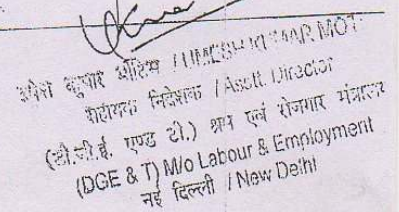 उमेश कुमार मोटिम / UMESH KUMAR MOT
सहायक निदेशक / Asstt. Director
(डी.जी.ई. एण्ड टी.) श्रम एवं रोजगार मंत्रालय
(DGE & T) M/o Labour & Employment
नई दिल्ली / New Delhi